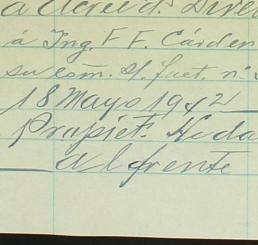 a Acred. Direc
á Ing. F F. Cárden
su com. s/. fact. n.
18 Mayo 1942
Propiet. Hida
al frente